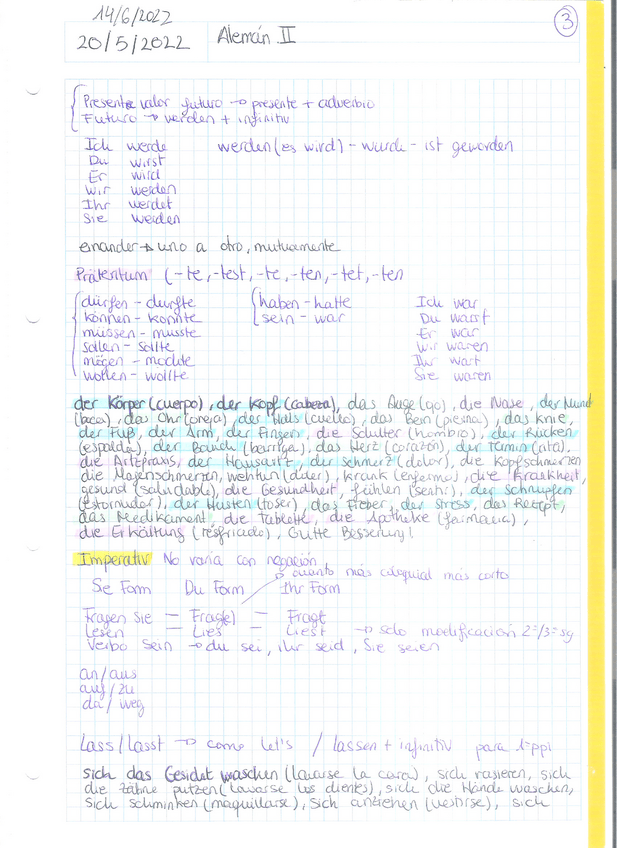 14/6/2022
20/5/2022 Alemán II
3
Presente valor futuro → presente + adverbio
Futuro → werden + infinitiv
Ich werde werden (es wird) - wurde - ist geworden
Du wirst
Er wird
Wir werden
Ihr werdet
Sie werden
einander → uno a otro, mutuamente
Präteritum (-te, -test, -te, -ten, -tet, -ten
dürfen - durfte haben - hatte Ich war
können - konnte sein - war Du warst
müssen - musste Er war
sollen - sollte Wir waren
mögen - mochte Ihr wart
wollen - wollte Sie waren
der Körper (cuerpo), der Kopf (cabeza), das Auge (ojo), die Nase, der Mund
(boca), das Ohr (oreja), der Hals (cuello), das Bein (pierna), das Knie,
der Fuß, der Arm, der Fingern, die Schulter (hombro), der Rücken
(espalda), der Bauch (barriga), das Herz (corazón), der Tamin (cita),
die Artzpraxis, der Hausartzt, der Schmerz (dolor), die Kopfschmerzen
die Magenschmerzen, wehtun (doler), krank (enfermo), die Krankheit,
gesund (saludable), die Gesundheit, fühlen (sentir), der Schnupfen
(estornudar), der Husten (toser), das Fieber, der Stress, das Rezept,
das Medikament, die Tablette, die Apotheke (farmacia),
die Erkältung (resfriado), Gutte Besserung!
Imperativ No varia con negación
→ cuanto más coloquial más corto
Sie Form Du Form Ihr Form
Fragen Sie = Frag(e) = Fragt
Lesen = Lies = Liest → solo modificación 2ª/3ª sg
Verbo sein → du sei, ihr seid, Sie seien
an/aus
auf/zu
da/weg
Lass/Lasst → como let's / lassen + infinitiv para 1ªppl
sich das Gesicht waschen (lavarse la cara), sich rasieren, sich
die Zähne putzen (lavarse los dientes), sich die Hände waschen,
sich schminken (maquillarse), sich anziehen (vestirse), sich